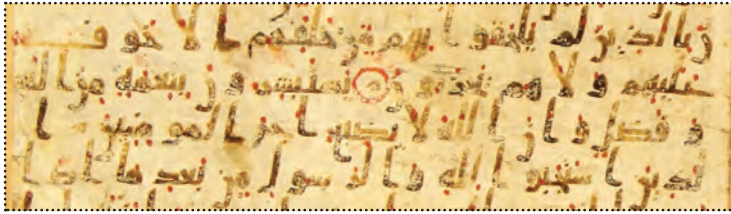 ن بالذين لم يلحقوا بهم من خلفهم الا خوف
عليهم ولا هم يحزنون يستبشرون بنعمة من الله
و فضل وان الله لا يضيع اجر المومنين ا
لذين استجبوا لله والرسول من بعد ما اصا